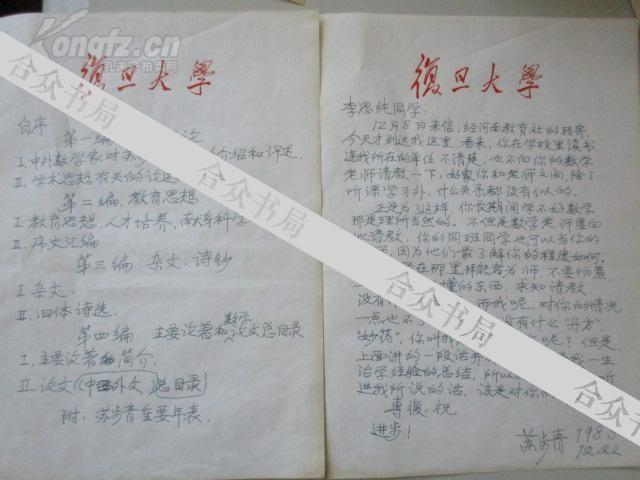 Kongfz.cn
孔夫子拍卖网
復旦大學
自序
第一编
I. 中外数学家对 介绍和评述.
II. 学术思想有关的论述
第二编. 教育思想
I. 教育思想, 人才培养, 献身科学
II. 序文汇编
第三编 杂文. 诗钞
I. 杂文.
II. 旧体诗选.
第四编 主要论著和数学论文总目录
I. 主要论著简介.
II. 论文(中外文)总目录
附. 苏步青主要年表.
復旦大學
李思纯同学:
12月8日来信, 经河南教育社的转寄,
今天才到达我这里. 看来, 你在学校里读书,
连我所在的单位不清楚, 也不向你的数学
老师请教一下, 好象你和老师之间, 除了
听课学习外, 什么关系都没有似的.
正是为了这样, 你长期间学不好数学,
那是理所当然的. 不但是数学老师要向
他请教, 你的同班同学也可以当你的
因为他们最了解你的程度如何.
在那里, 拜能者为师, 不要怕羞,
懂的东西, 求知请教.
没有 而我呢, 对你的情况
一点也不 没有什么“丹方,
妙药”, 你叫我 呢? 但是,
上面讲的一段话 是我一生
治学经验的总结, 所以 听
进我所说的话, 该是对你
专复. 祝
进步!
苏步青 1983
12.22.
合众书局
合众书局
合众书局
合众书局
合众书局
合众书局